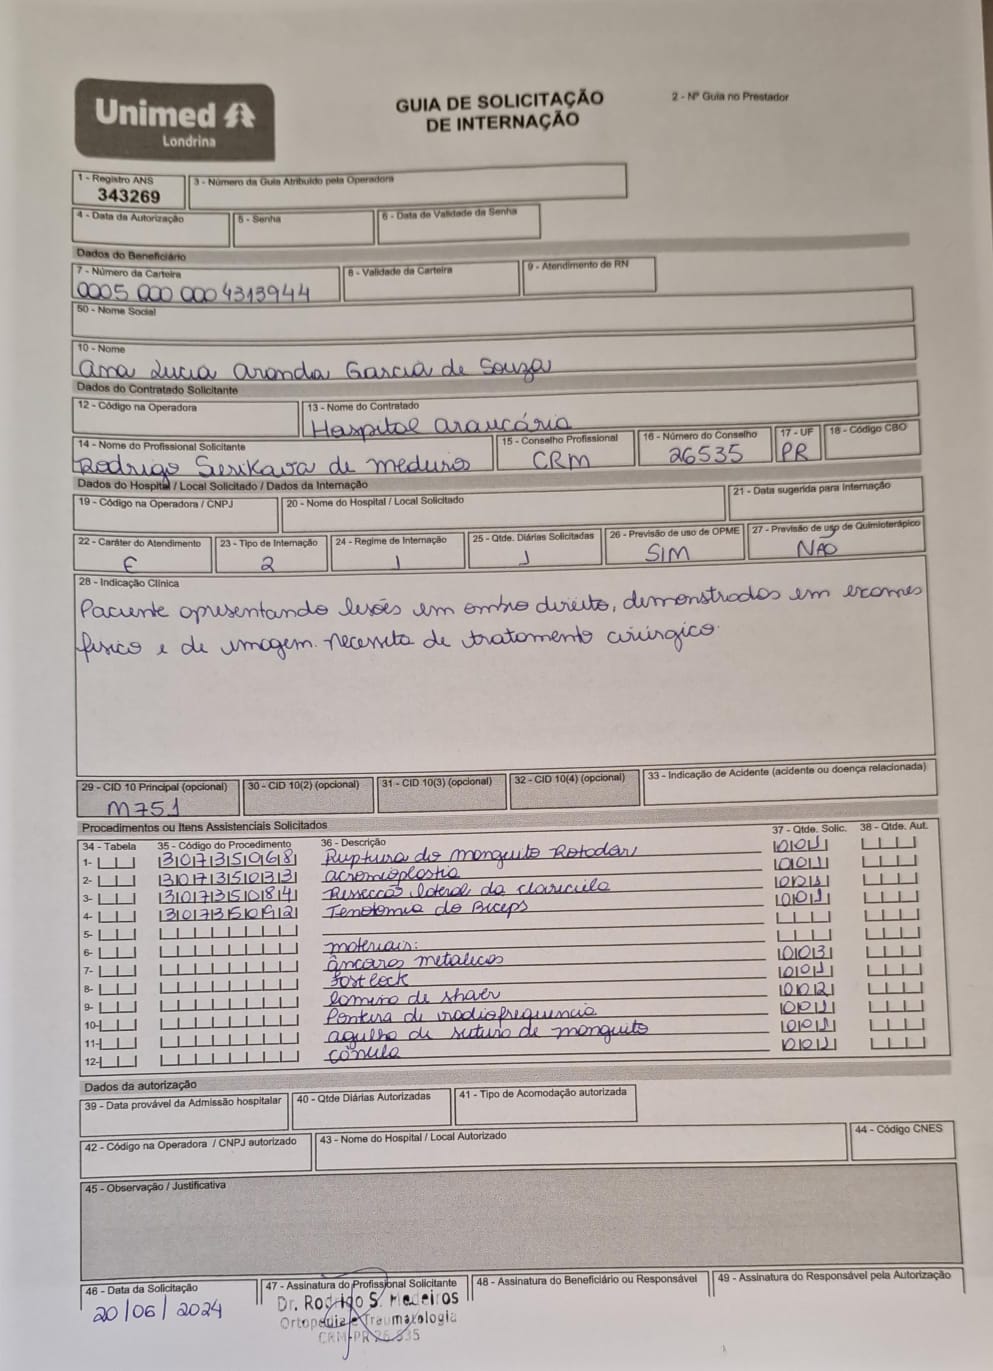 Unimed
Londrina
GUIA DE SOLICITAÇÃO
DE INTERNAÇÃO
2 - Nº Guia no Prestador
1 - Registro ANS
343269
3 - Número da Guia Atribuído pela Operadora
4 - Data da Autorização
5 - Senha
6 - Data de Validade da Senha
Dados do Beneficiário
7 - Número da Carteira
0005 000 000 4313944
8 - Validade da Carteira
9 - Atendimento de RN
50 - Nome Social
10 - Nome
Ana Lucia Aranda Garcia de Souza
Dados do Contratado Solicitante
12 - Código na Operadora
13 - Nome do Contratado
Hospital Araucária
14 - Nome do Profissional Solicitante
Rodrigo Serikava de Medeiros
15 - Conselho Profissional
CRM
16 - Número do Conselho
26535
17 - UF
PR
18 - Código CBO
Dados do Hospital / Local Solicitado / Dados da Internação
19 - Código na Operadora / CNPJ
20 - Nome do Hospital / Local Solicitado
21 - Data sugerida para Internação
22 - Caráter do Atendimento
E
23 - Tipo de Internação
2
24 - Regime de Internação
1
25 - Qtde. Diárias Solicitadas
1
26 - Previsão de uso de OPME
SIM
27 - Previsão de uso de Quimioterápico
NÃO
28 - Indicação Clínica
Paciente apresentando lesões em ombro direito, demonstrados em exames
físico e de imagem. necessita de tratamento cirúrgico.
29 - CID 10 Principal (opcional)
M751
30 - CID 10(2) (opcional)
31 - CID 10(3) (opcional)
32 - CID 10(4) (opcional)
33 - Indicação de Acidente (acidente ou doença relacionada)
Procedimentos ou Itens Assistenciais Solicitados
34 - Tabela 35 - Código do Procedimento 36 - Descrição 37 - Qtde. Solic. 38 - Qtde. Aut.
1- 30735068 Ruptura do manguito Rotodar 001
2- 30735033 acromioplastia 001
3- 30735084 Ressecção lateral da clavicula 001
4- 30735092 Tenotomia do Biceps 001
5-
6- materiais:
7- âncoras metalicas 003
8- fost lock 001
9- lamina de shaver 002
10- Ponteira de radiofrequencia 001
11- agulha de sutura de manguito 001
12- cânula 001
Dados da autorização
39 - Data provável da Admissão hospitalar
40 - Qtde Diárias Autorizadas
41 - Tipo de Acomodação autorizada
42 - Código na Operadora / CNPJ autorizado
43 - Nome do Hospital / Local Autorizado
44 - Código CNES
45 - Observação / Justificativa
46 - Data da Solicitação
20/06/2024
47 - Assinatura do Profissional Solicitante
Dr. Rodrigo S. Medeiros
Ortopedia e Traumatologia
CRM-PR 26.535
48 - Assinatura do Beneficiário ou Responsável
49 - Assinatura do Responsável pela Autorização